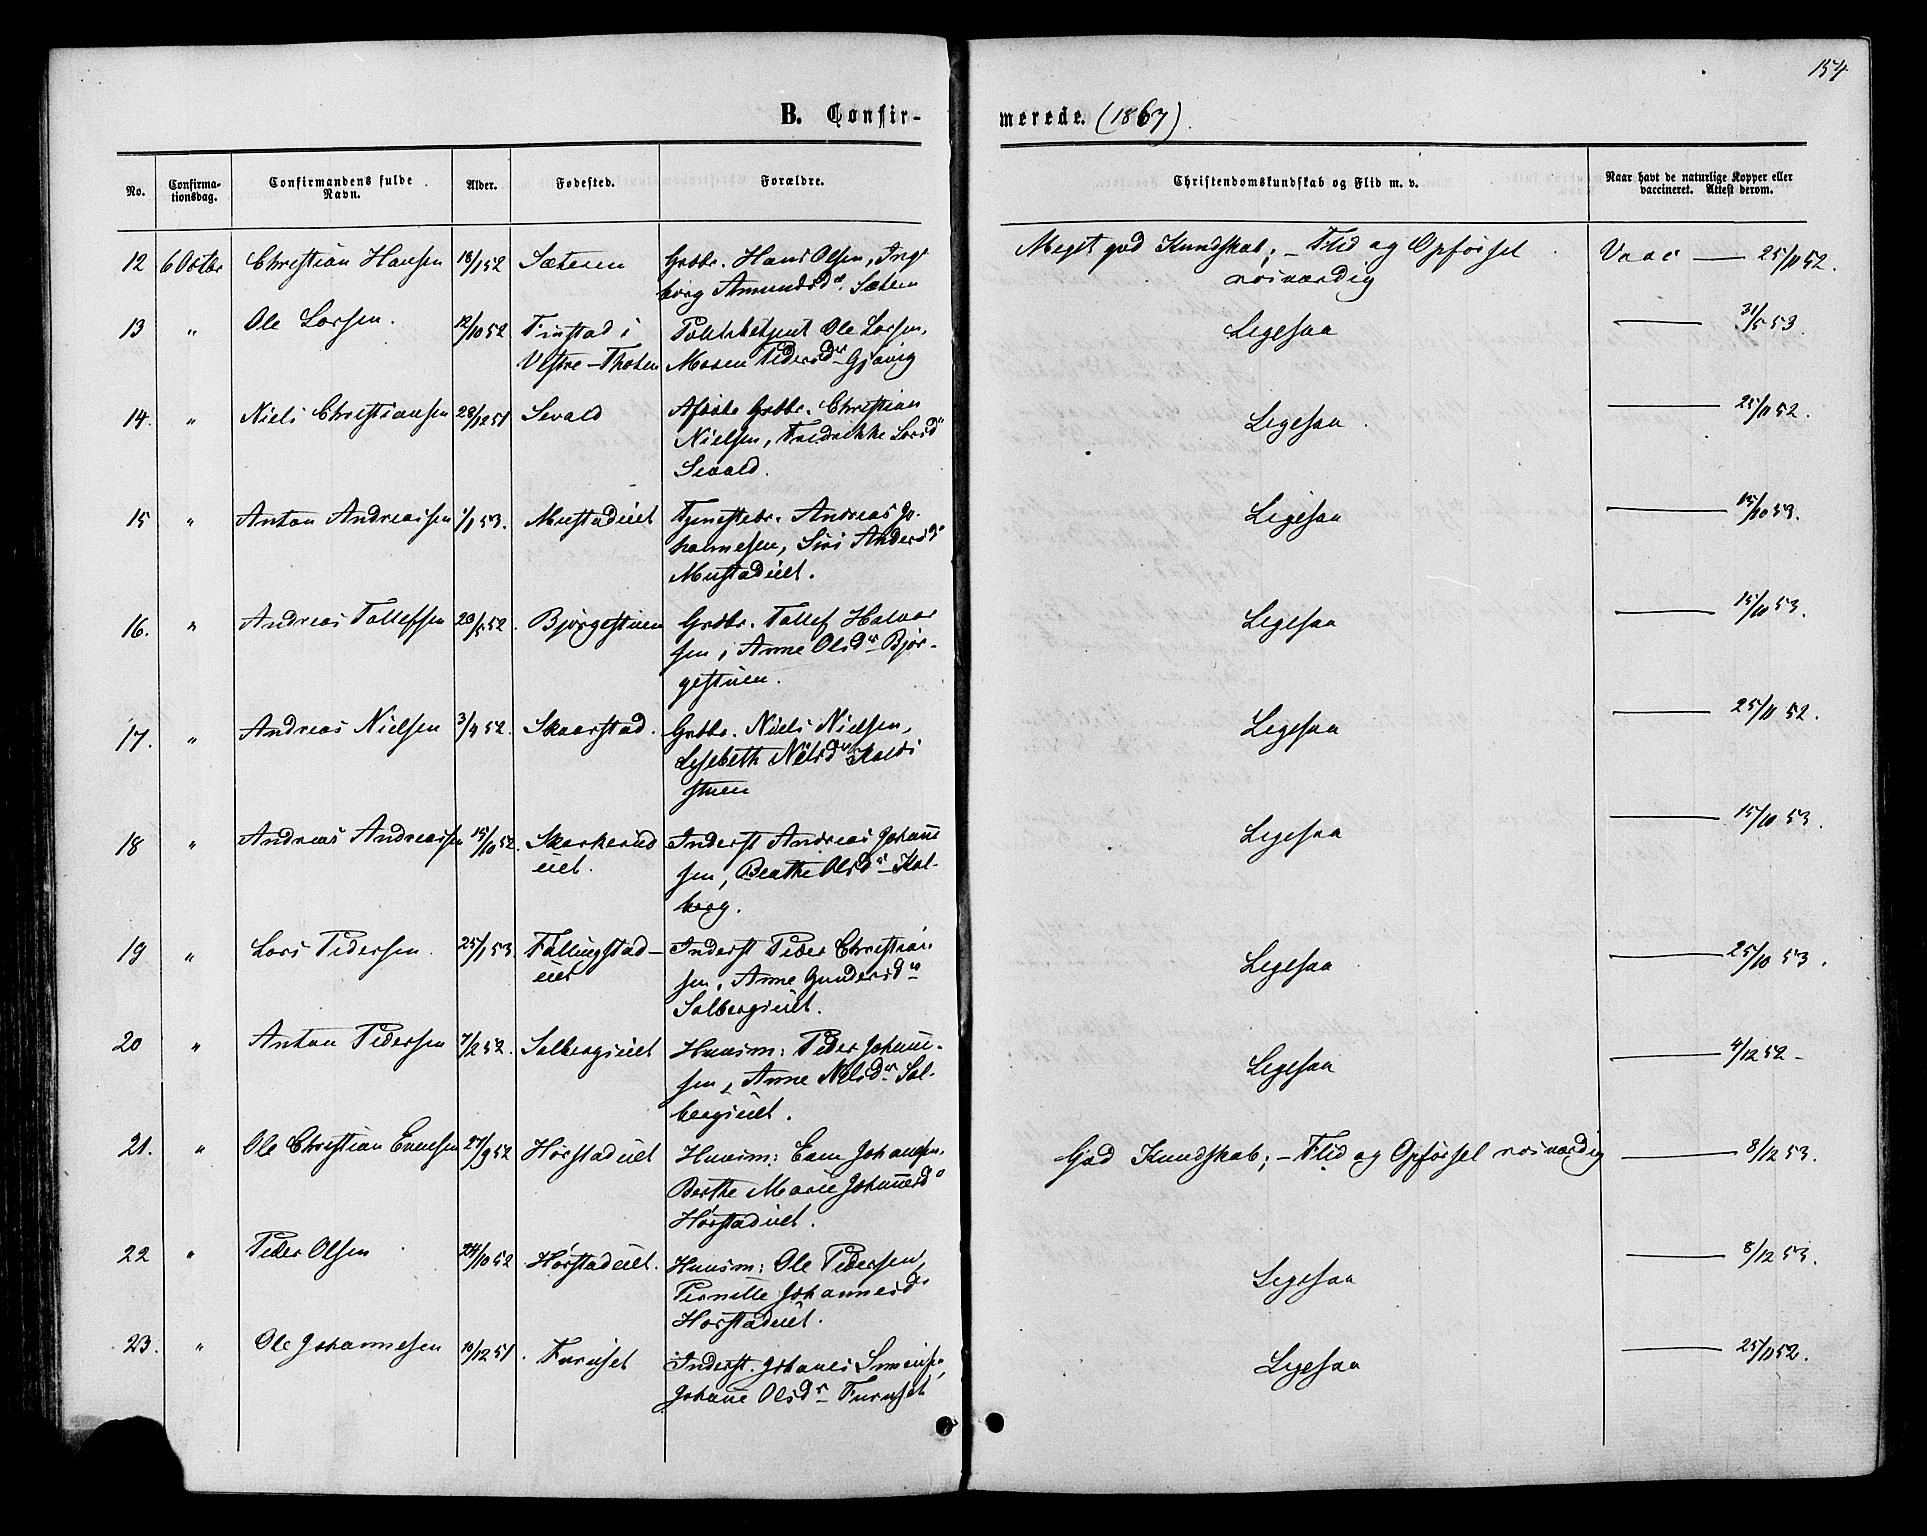 154
B. Confir-
merede. (1867).
No.
Confirma-
tionsdag.
Confirmandens fulde
Navn.
Alder.
Fødested.
Forældre.
Christendomskundskab og Flid m. v.
Naar havt de naturlige Kopper eller
vaccineret. Attest derom.
12 6 Octbr Christian Hansen 18/1 52 Sæteren Grdbr. Hans Olsen, Inge
borg Amundsdr. Sæteren
Meget god Kundskab; – Flid og Opførsel Vacc — 25/11 52.
rosværdig
13 " Ole Larsen. 12/10 52 Finstad i Politibetjent Ole Larsen,
Vestre-Thoten Maren Pedersdr Gjøvig
Ligesaa — 31/5 53.
14. " Niels Christiansen 28/12 51 Sevald Afdøde Grdbr. Christian
Nielsen, Fredrikke Larsdr
Sevald.
Ligesaa — 25/11 52.
15 " Anton Andreassen 1/1 53. Mustadeiet Tjenestekr. Andreas Jo-
hannesen, Siri Andersdr
Mustadeiet.
Ligesaa — 15/10 53.
16. " Andreas Tollefsen 20/5 52. Bjørgestuen Grdbr. Tollef Halvor
sen, Anne Olsdr Bjør-
gestuen.
Ligesaa — 15/10 53.
17. " Andreas Nielsen 3/9 52. Skaarstad. Grdbr. Niels Nielsen,
Lisebeth Nielsdr
stuen
Ligesaa — 25/11 52.
18 " Andreas Andreassen 15/10 52. Skarkerud Inderst Andreas Johanne
eiet. sen, Beathe Olsdr – Kal-
berg.
Ligesaa — 15/10 53.
19 " Lars Pedersen. 25/1 53 Fallingstad- Inderst Peder Christian-
eiet sen, Anne Gundersdr
Solbergseiet.
Ligesaa — 25/10 53.
20 " Anton Pedersen 7/2 52. Solbergseiet Huusm: Peder Johanne-
sen, Anne Nilsdr. Sol-
bergseiet.
Ligesaa — 4/12 52 –
21. " Ole Christian Evensen 27/9 52 Hørstadeiet Huusm: Even Johansen,
Berthe Marie Johannesdr
Hørstadeiet.
God Kundskab; – Flid og Opførsel rosværdig — 8/12 53.
22 " Peder Olsen 24/10 52 Hørstadeiet. Huusm: Ole Pedersen,
Pernille Johannesdr
Hørstadeiet.
Ligesaa — 8/12 53.
23. " Ole Johannesen 10/12 51. Furuset Inderst. Johanes Simensen,
Johanne Olsdr – Furuset
Ligesaa — 25/11 52.